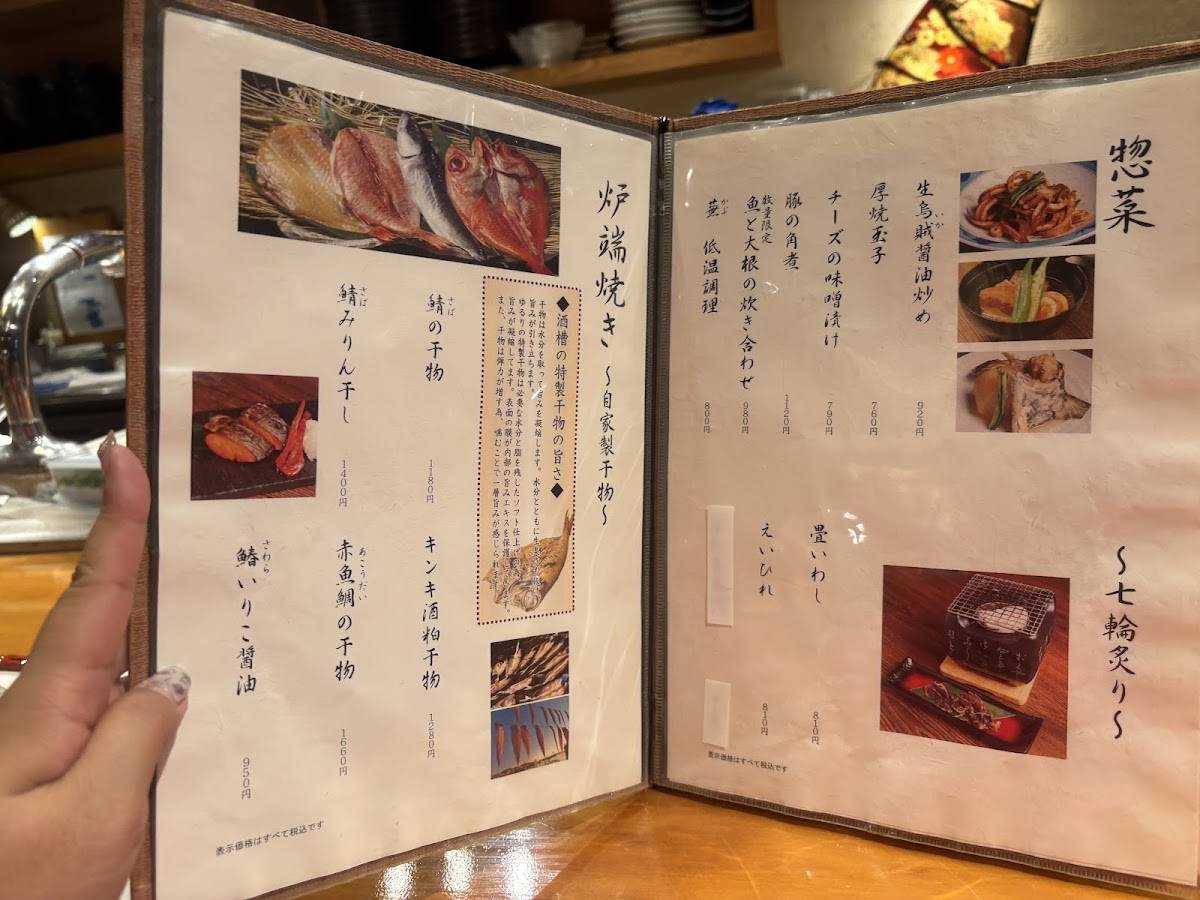 惣菜
生烏賊醤油炒め
いか
920円
厚焼玉子
760円
チーズの味噌漬け
790円
豚の角煮
1120円
数量限定
魚と大根の炊き合わせ
980円
蕪 低温調理
かぶ
800円
〜七輪炙り〜
畳いわし
810円
えいひれ
810円
表示価格はすべて税込です
炉端焼き 〜自家製干物〜
◆酒槽の特製干物の旨さ◆
干物は水分を取って旨みを凝縮します。水分とともに生
旨みが引き立ちます。
ゆるりの特製干物は必要な水分と脂を残したソフト仕上げ
旨みが凝縮してます。表面の膜が内部の旨みエキスを保護し
また、干物は弾力が増す為、噛むことで一層旨みが感じられます。
鯖の干物
さば
1180円
鯖みりん干し
さば
1400円
キンキ酒粕干物
1280円
赤魚鯛の干物
あこうだい
1660円
鰆いりこ醤油
さわら
950円
表示価格はすべて税込です